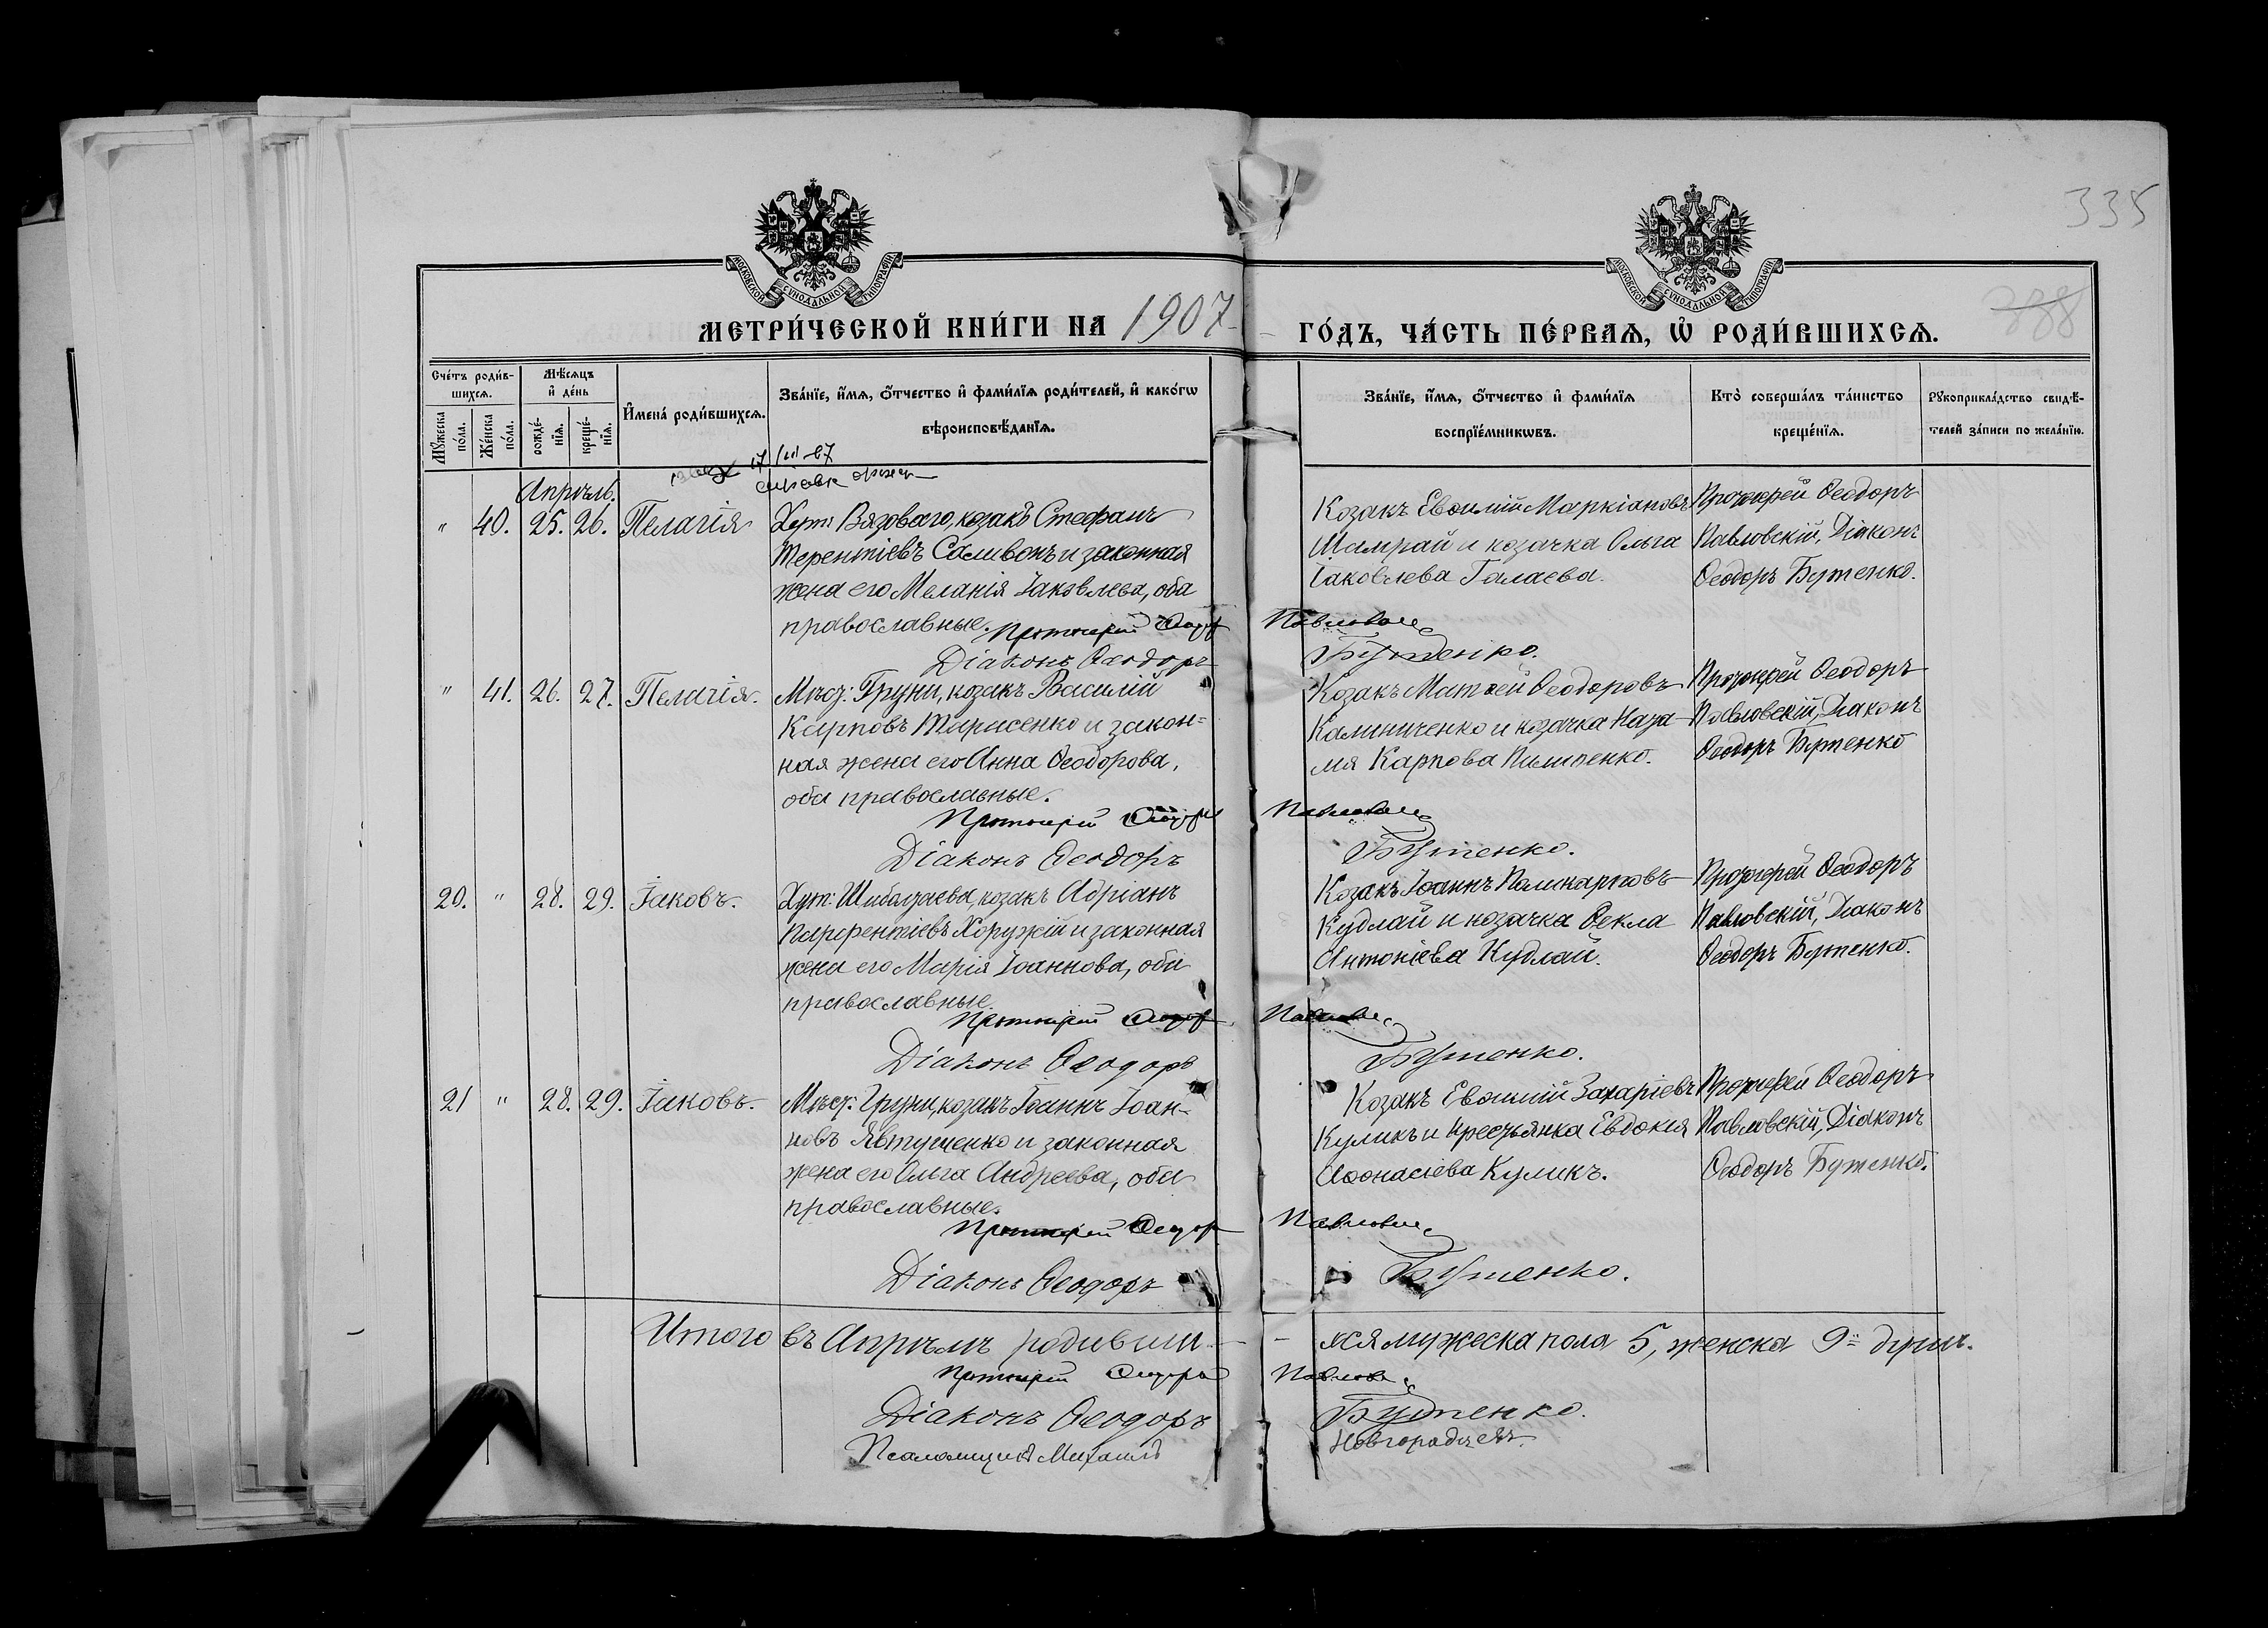 335
МОСКОВСКОЙ СѴНОДАЛЬНОЙ ТИПОГРАФІИ
МОСКОВСКОЙ СѴНОДАЛЬНОЙ ТИПОГРАФІИ
МЕТРИ́ЧЕСКОЙ КНИ́ГИ НА 1907
ГО́ДЪ, ЧА́СТЬ ПЕ́РВАѦ, Ѽ РОДИ́ВШИХСѦ.
788
Сче́тъ роди́в-
шихсѧ.
Мꙋ́жеска по́ла.
Же́нска по́ла.
Мѣ́сѧцъ
и҆ де́нь
рожде́-
нїѧ.
креще́-
нїѧ.
И҆мена̀ роди́вшихсѧ.
Зва́нїе, и҆́мѧ, ѻ҆́тчество и҆ фами́лїѧ роди́телей, и҆ како́гѡ
вѣроисповѣ́данїѧ.
Зва́нїе, и҆́мѧ, ѻ҆́тчество и҆ фами́лїѧ
воспрїе́мникѡвъ.
Кто̀ соверша́лъ та́инство
креще́нїѧ.
Рꙋкоприкла́дство свидѣ́-
телей за́писи по жела́нїю.
17/III-67
Апрѣль.
" 40. 25. 26. Пелагія
Хут: Вязоваго, козакъ Стефанъ
Терентіевъ Саливонъ и законная
жена его Меланія Іаковлева, оба
православные.
Козакъ Евѳимій Маркіановъ
Шамрай и козачка Ольга
Іаковлева Галаева.
Протоіерей Ѳеодоръ
Павловскій, Діаконъ
Ѳеодоръ Бутенко.
Протоіерей Ѳеодоръ Павловскій
Діаконъ Ѳеодоръ Бутенко.
" 41. 26. 27. Пелагія.
Мѣст: Груни, козакъ Василій
Карповъ Тарисенко и закон=
ная жена его Анна Ѳеодорова,
оба православные.
Козакъ Матѳей Ѳеодоровъ
Калиниченко и козачка
Карпова Пилипенко.
Протоіерей Ѳеодоръ
Павловскій, Діаконъ
Ѳеодоръ Бутенко
Протоіерей Ѳеодоръ Павловскій
Діаконъ Ѳеодоръ Бутенко.
20. " 28. 29. Іаковъ.
Хут: козакъ Адріанъ
Парфентіевъ Хоружій и законная
жена его Марія Іоаннова, оба
православные.
Козакъ Іоаннъ Поликарповъ
Кудлай и козачка Ѳекла
Антоніева Кудлай.
Протоіерей Ѳеодоръ
Павловскій, Діаконъ
Ѳеодоръ Бутенко.
Протоіерей Ѳеодоръ Павловскій
Діаконъ Ѳеодоръ Бутенко.
21 " 28. 29. Іаковъ.
Мѣст: Груни, козакъ Іоаннъ Іоан-
новъ Явтушенко и законная
жена его Ольга Андреева, оба
православные.
Козакъ Евѳимій Захаріевъ
Куликъ и крестьянка Евдокія
Аѳонасіева Куликъ.
Протоіерей Ѳеодоръ
Павловскій, Діаконъ
Ѳеодоръ Бутенко.
Протоіерей Ѳеодоръ Павловскій
Діаконъ Ѳеодоръ Бутенко.
Итого въ Апрѣлѣ родивши- - хся мужеска пола 5, женска 9= душъ.
Протоіерей Ѳеодоръ Павловскій
Діаконъ Ѳеодоръ Бутенко.
Псаломщикъ Михаилъ Новгородцевъ.